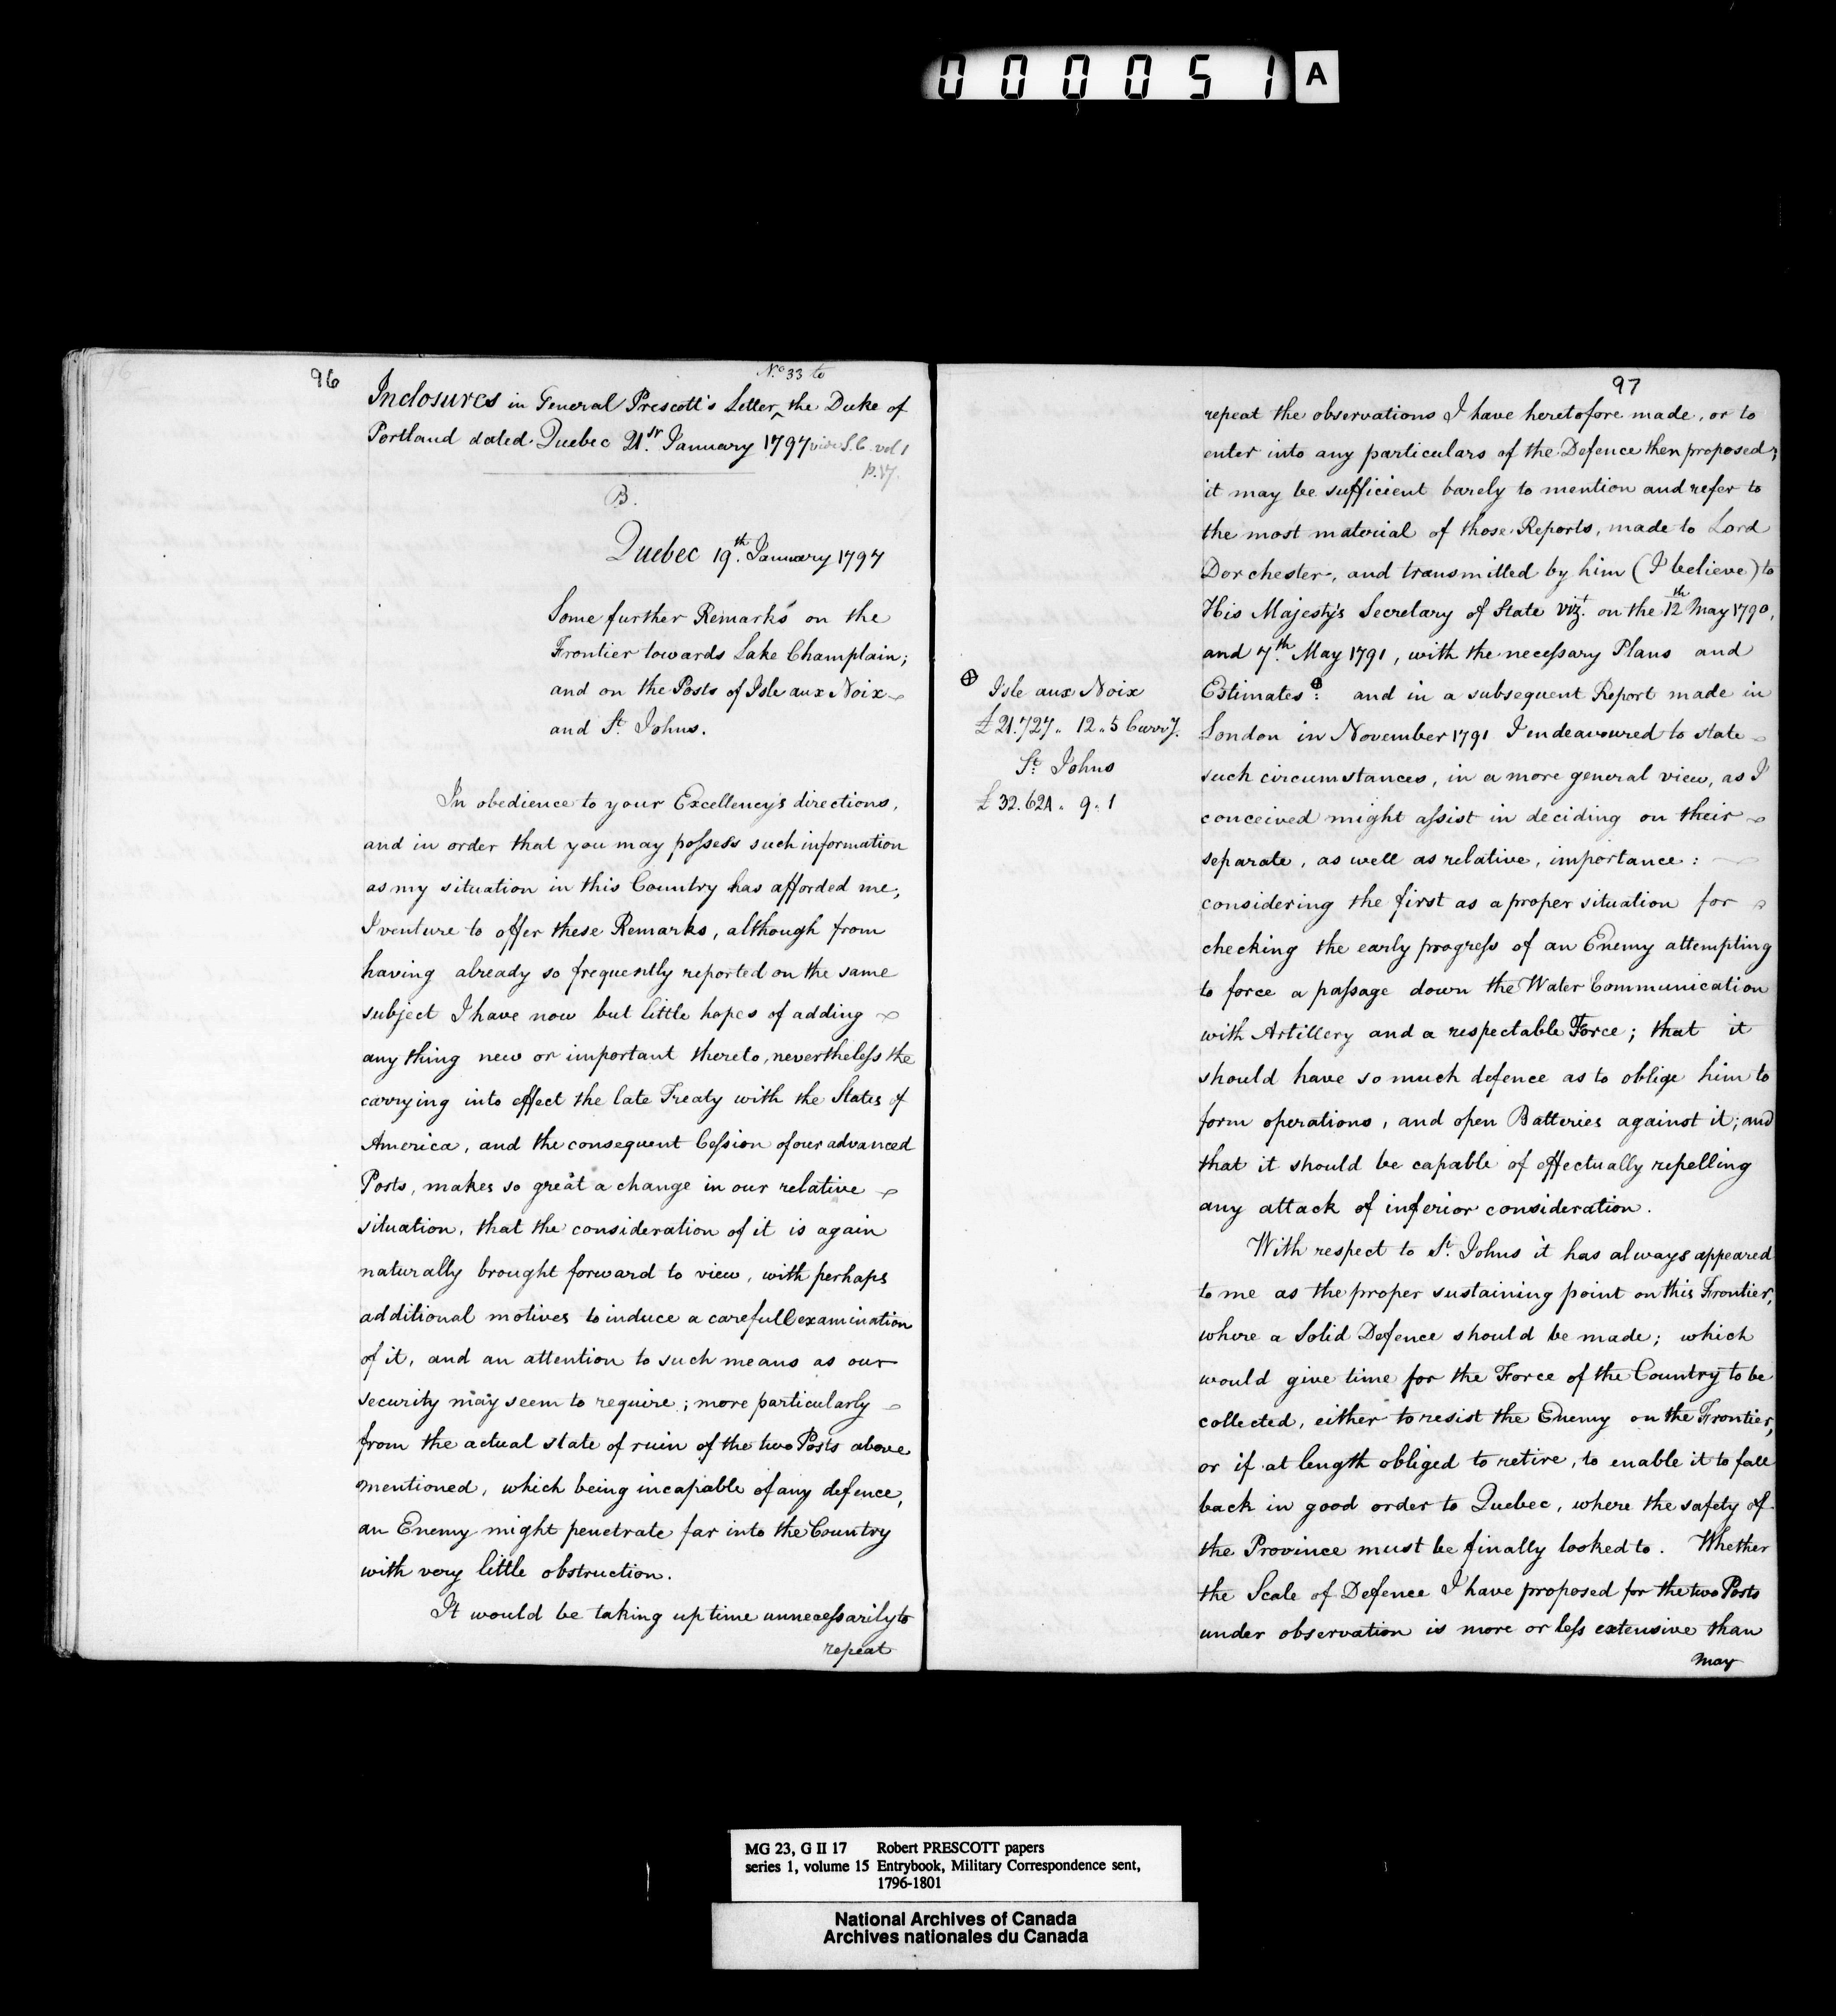 000051 A
96
No. 33 to
Inclosures in General Prescott's Letter ‸ the Duke of
Portland dated Quebec 21st January 1797 vide S.C. vol 1
p. 17.
B.
Quebec 19th January 1797
Some further Remarks on the
Frontier towards Lake Champlain;
and on the Posts of Isle aux Noix
and St Johns.
In obedience to your Excellency's directions,
and in order that you may possess such information
as my situation in this Country has afforded me,
I venture to offer these Remarks, although from
having already so frequently reported on the same
subject I have now but little hopes of adding
any thing new or important thereto, nevertheless the
carrying into effect the late Treaty with the States of
America, and the consequent Cession of our advanced
Posts, makes so great a change in our relative
situation, that the consideration of it is again
naturally brought forward to view, with perhaps
additional motives to induce a carefull examination
of it, and an attention to such means as our
security may seem to require; more particularly
from the actual state of ruin of the two Posts above
mentioned, which being incapable of any defence,
an Enemy might penetrate far into the Country
with very little obstruction.
It would be taking up time unnecessarily to
repeat
97
repeat the observations I have heretofore made, or to
enter into any particulars of the Defence then proposed;
it may be sufficient barely to mention and refer to
the most material of those Reports, made to Lord
Dorchester, and transmitted by him (I believe) to
His Majesty's Secretary of State vizt. on the 12th May 1790,
and 7th May 1791, with the necessary Plans and
Estimates ⊕: and in a subsequent Report made in
London in November 1791 I endeavoured to state
such circumstances, in a more general view, as I
conceived might assist in deciding on their
separate, as well as relative, importance:
considering the first as a proper situation for
checking the early progress of an Enemy attempting
to force a passage down the Water Communication
with Artillery and a respectable Force; that it
should have so much defence as to oblige him to
form operations, and open Batteries against it; and
that it should be capable of effectually repelling
any attack of inferior consideration.
With respect to St. Johns it has always appeared
to me as the proper sustaining point on this Frontier,
where a Solid Defence should be made; which
would give time for the Force of the Country to be
collected, either to resist the Enemy on the Frontier,
or if at length obliged to retire, to enable it to fall
back in good order to Quebec, where the safety of
the Province must be finally looked to. Whether
the Scale of Defence I have proposed for the two Posts
under observation is more or less extensive than
may
⊕ Isle aux Noix
£21.727 „ 12 „ 5 Curry.
St. Johns
£32.621 „ 9 „ 1
MG 23, G II 17 Robert PRESCOTT papers
series 1, volume 15 Entrybook, Military Correspondence sent,
1796-1801
National Archives of Canada
Archives nationales du Canada